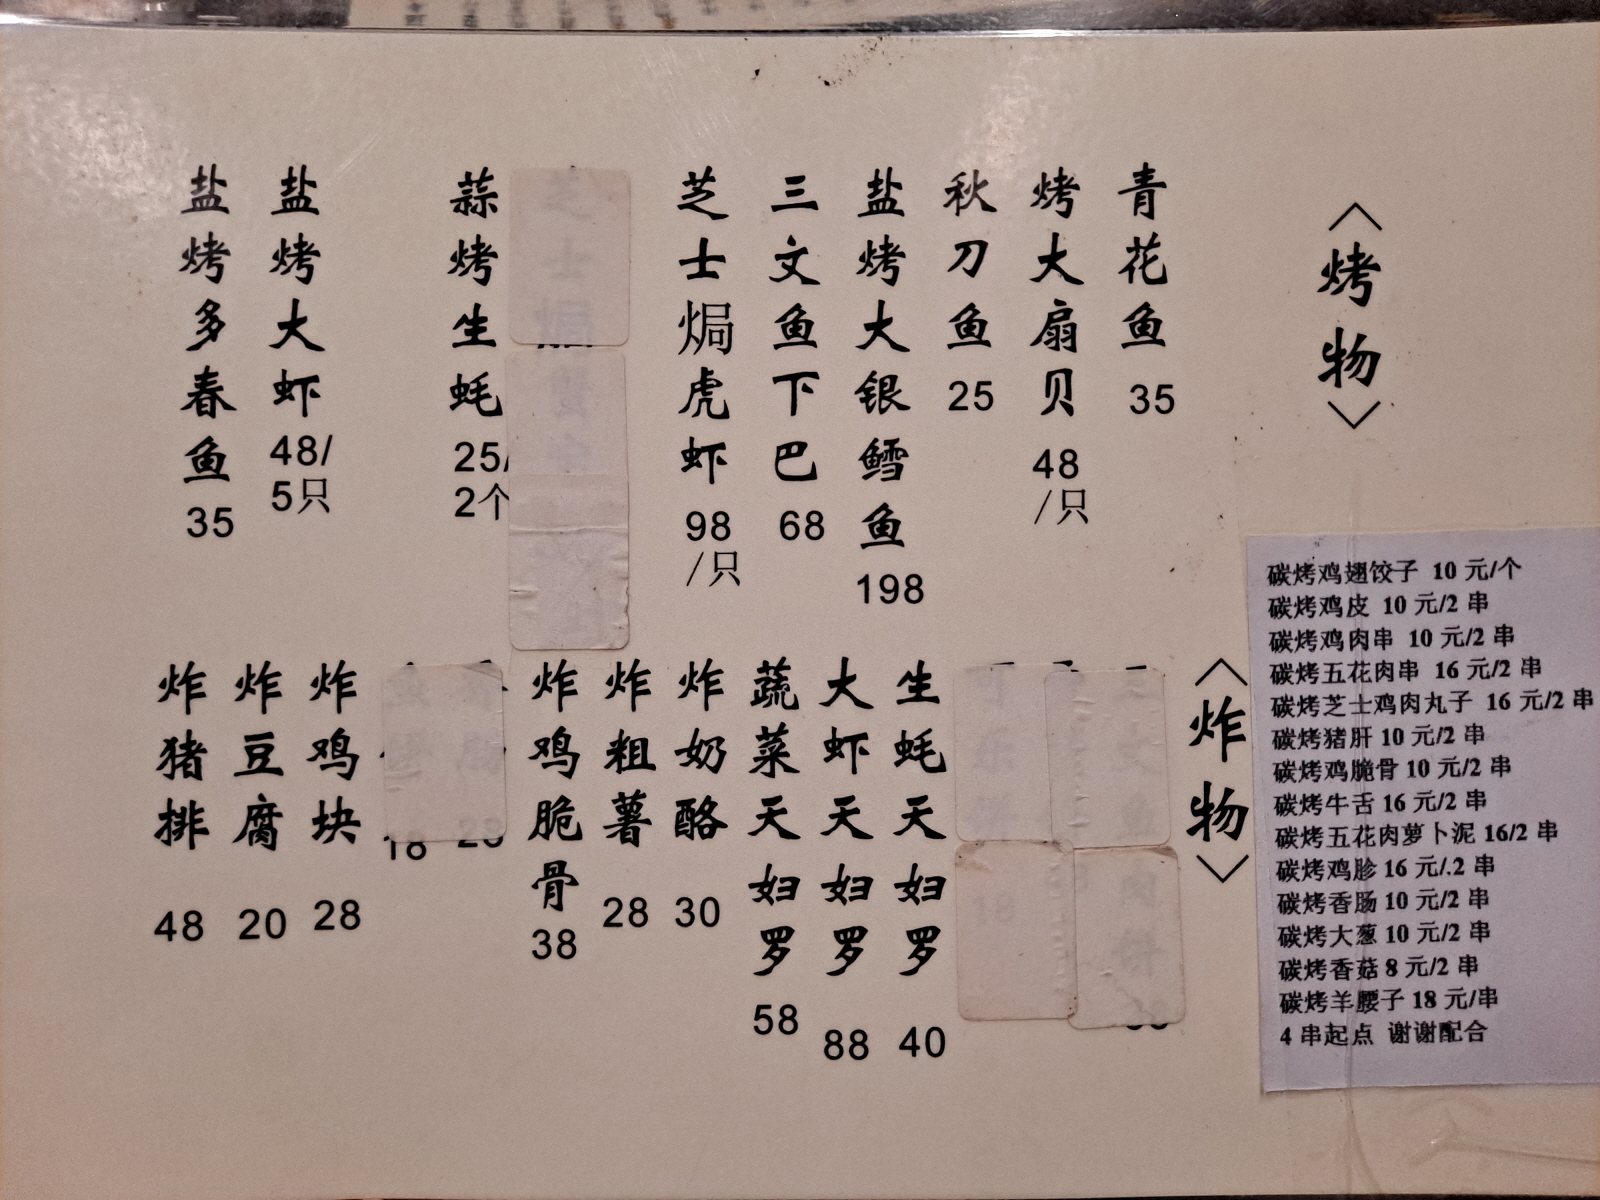 〈烤物〉
青花鱼 35
烤大扇贝 48/只
秋刀鱼 25
盐烤大银鳕鱼 198
三文鱼下巴 68
芝士焗虎虾 98/只
蒜烤生蚝 25/2个
盐烤大虾 48/5只
盐烤多春鱼 35
〈炸物〉
生蚝天妇罗 40
大虾天妇罗 88
蔬菜天妇罗 58
炸奶酪 30
炸粗薯 28
炸鸡脆骨 38
18
炸鸡块 28
炸豆腐 20
炸猪排 48
碳烤鸡翅饺子 10 元/个
碳烤鸡皮 10 元/2 串
碳烤鸡肉串 10 元/2 串
碳烤五花肉串 16 元/2 串
碳烤芝士鸡肉丸子 16 元/2 串
碳烤猪肝 10 元/2 串
碳烤鸡脆骨 10 元/2 串
碳烤牛舌 16 元/2 串
碳烤五花肉萝卜泥 16/2 串
碳烤鸡胗 16 元/.2 串
碳烤香肠 10 元/2 串
碳烤大葱 10 元/2 串
碳烤香菇 8 元/2 串
碳烤羊腰子 18 元/串
4 串起点 谢谢配合